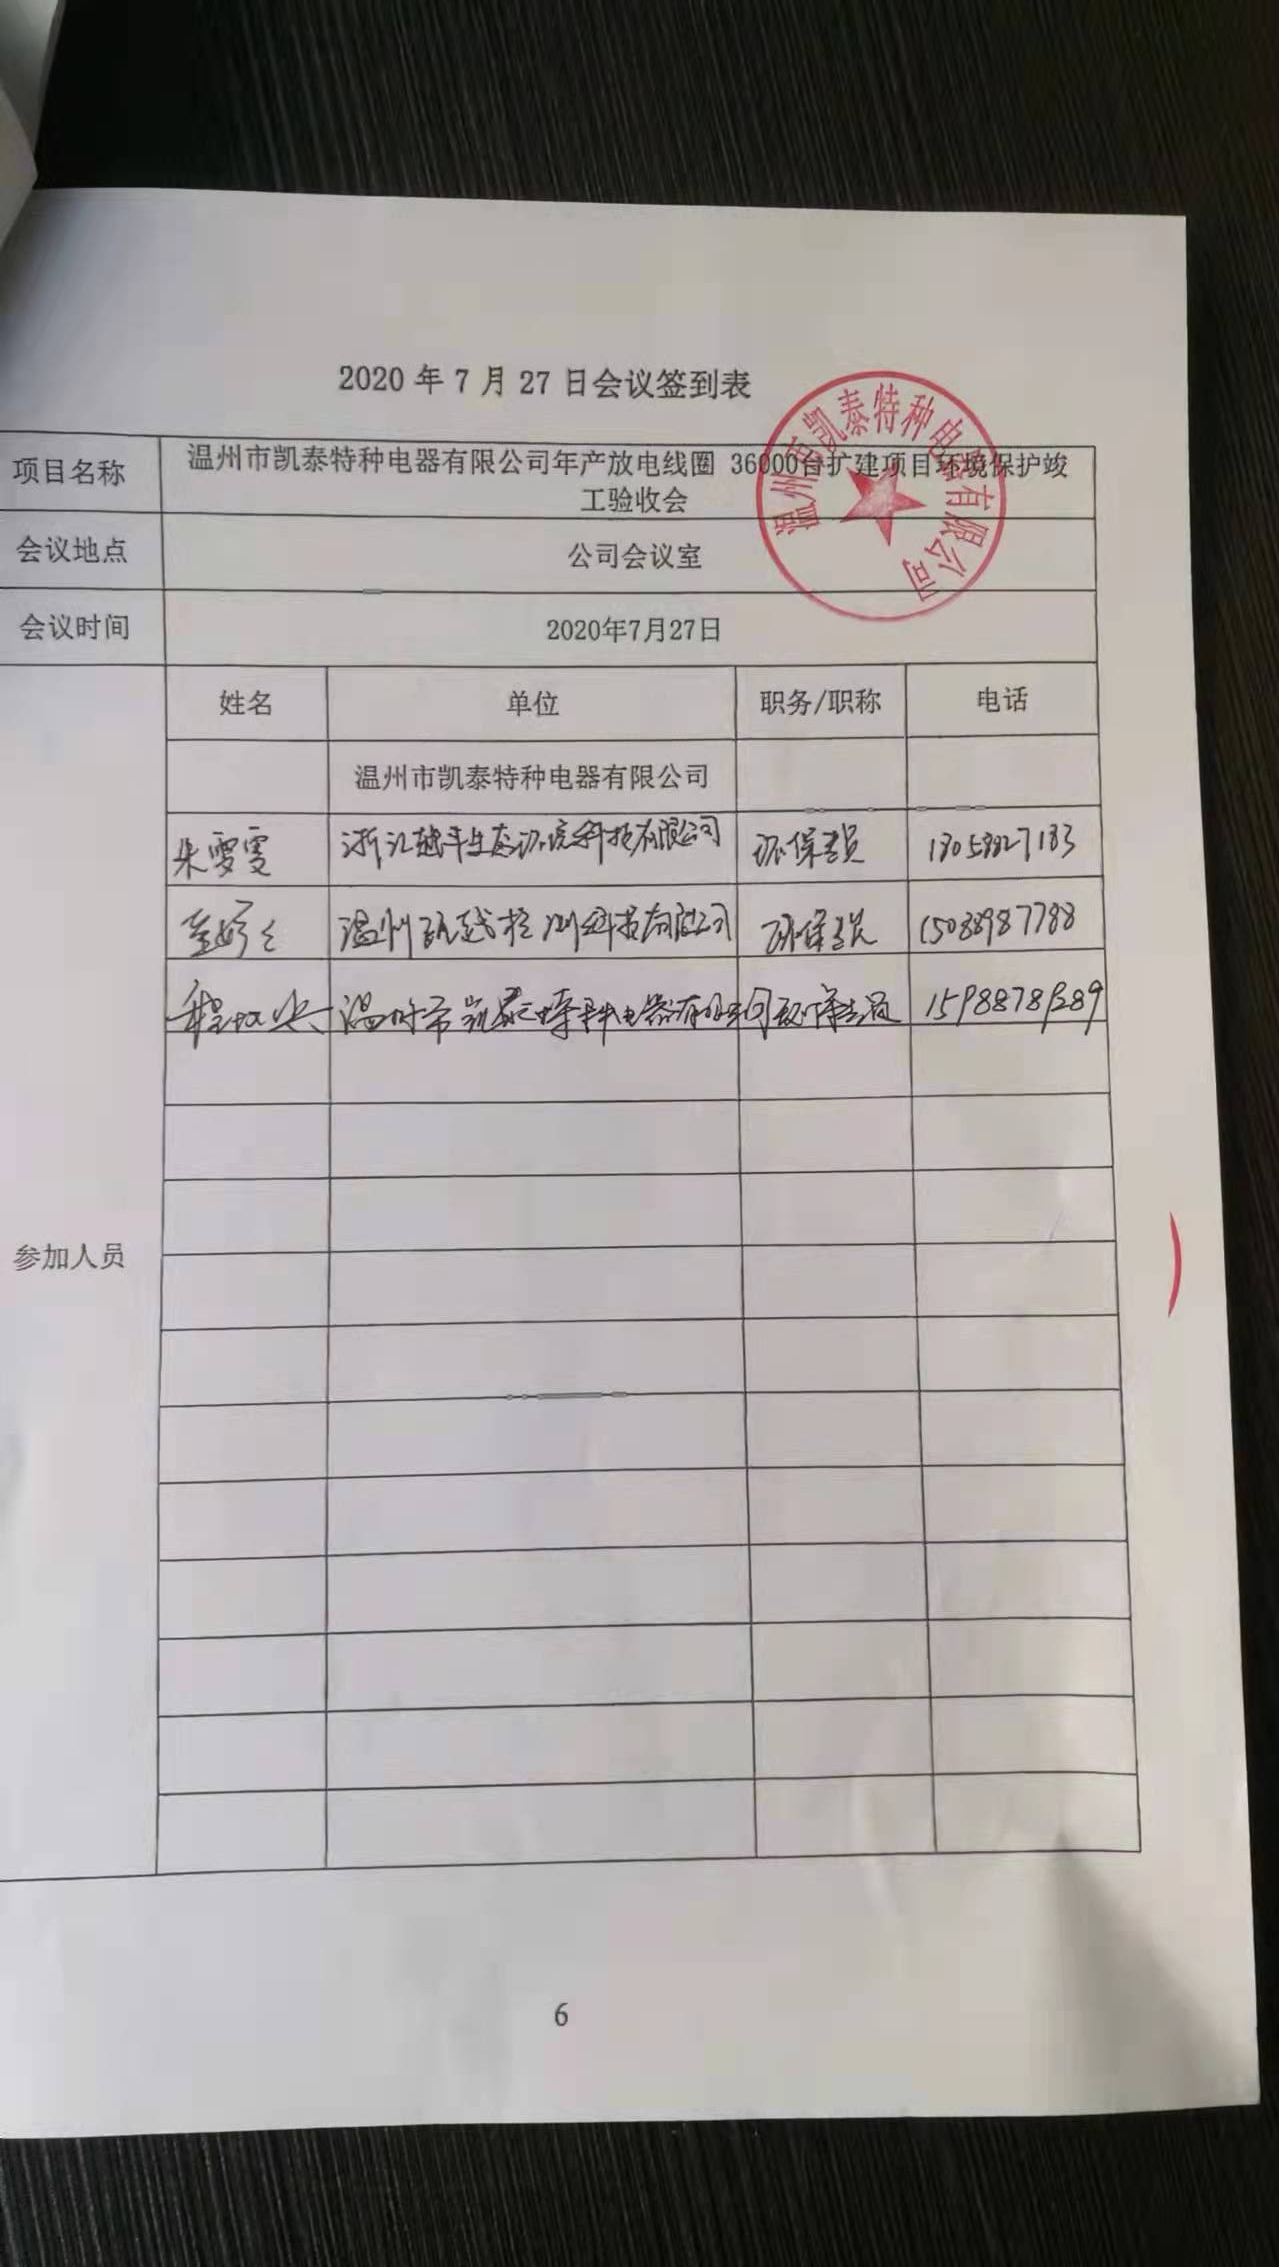 2020年7月27日会议签到表
温州市凯泰特种电器有限公司
项目名称
温州市凯泰特种电器有限公司年产放电线圈 36000台扩建项目环境保护竣
工验收会
会议地点
公司会议室
会议时间
2020年7月27日
参加人员
姓名 单位 职务/职称 电话
温州市凯泰特种电器有限公司
朱雯雯 浙江 生态环境科技有限公司 环保专员
温州 检测科技有限公司 环保专员 15088987788
温州市凯泰特种电器有限公司 环保专员
6